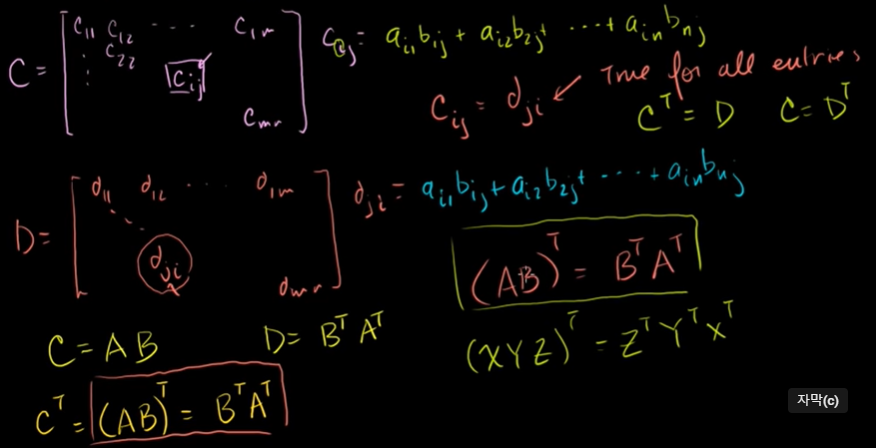 C = [ c₁₁ c₁₂ ... c₁ₘ
c₂₂
cᵢⱼ
cₘᵣ ]
cᵢⱼ = aᵢ₁b₁ⱼ + aᵢ₂b₂ⱼ + ... + aᵢₙbₙⱼ
cᵢⱼ = dⱼᵢ ← True for all entries
Cᵀ = D C = Dᵀ
D = [ d₁₁ d₁₂ ... d₁ₘ
dⱼᵢ
dₘᵣ ]
dⱼᵢ = aᵢ₁b₁ⱼ + aᵢ₂b₂ⱼ + ... + aᵢₙbₙⱼ
(AB)ᵀ = BᵀAᵀ
C = AB D = BᵀAᵀ
(XYZ)ᵀ = ZᵀYᵀXᵀ
Cᵀ = (AB)ᵀ = BᵀAᵀ
자막(c)